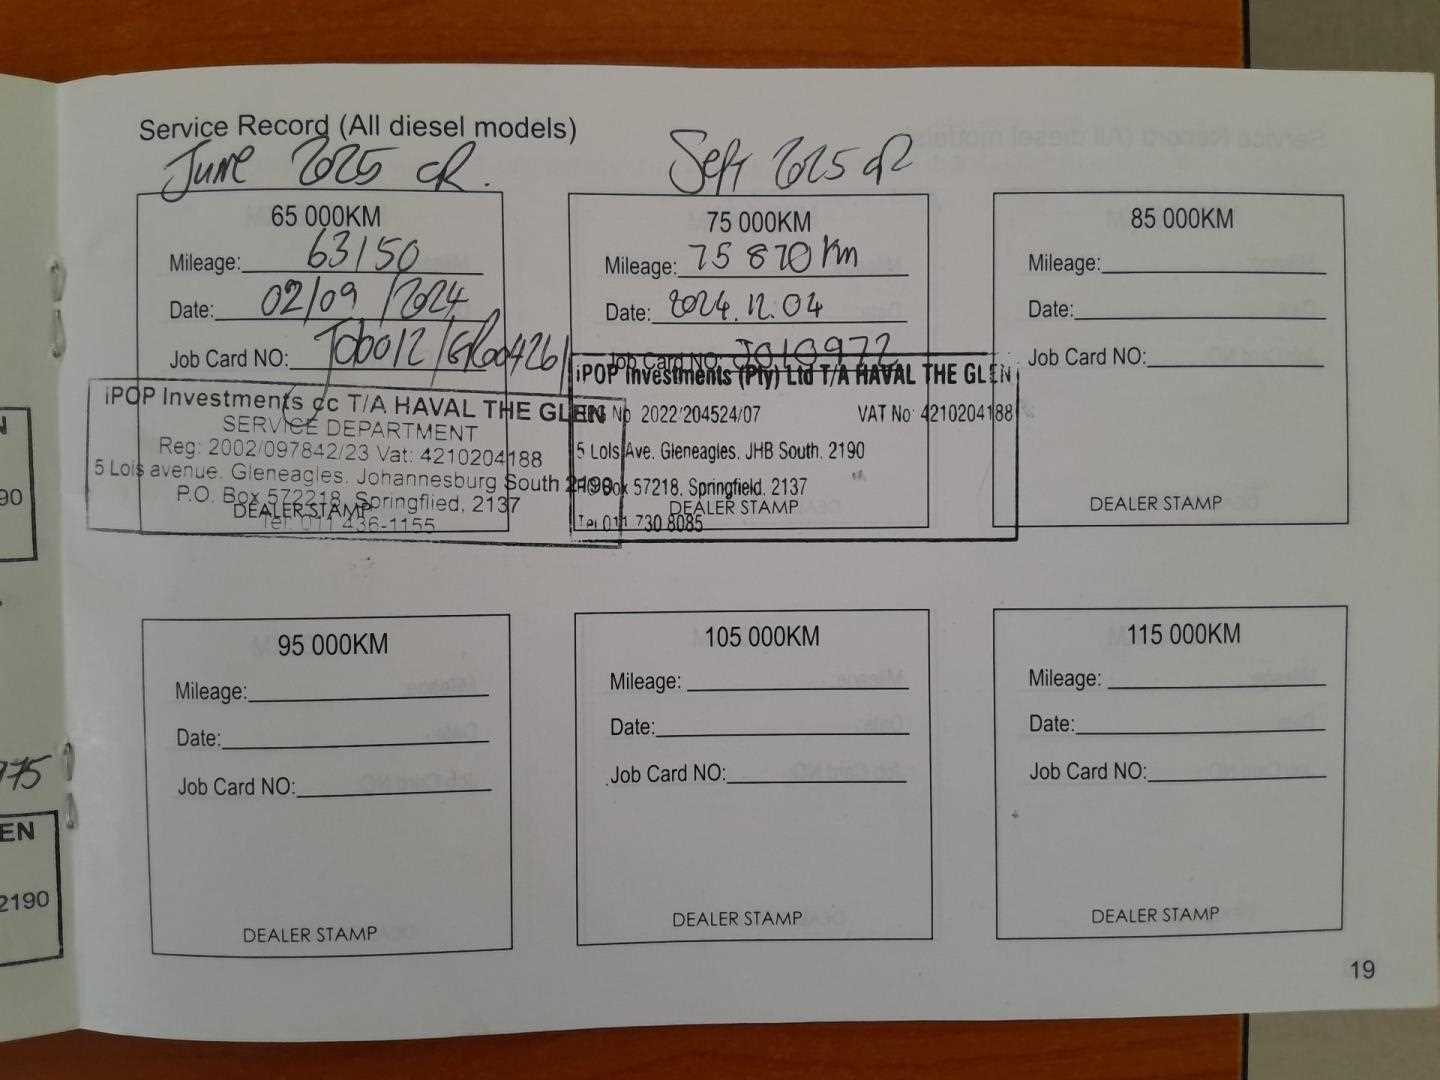 Service Record (All diesel models)
June 2025 CR.
Sept 2025 CR
65 000KM
Mileage: 63150
Date: 02/09/2024
Job Card NO:
iPOP Investments cc T/A HAVAL THE GLEN
SERVICE DEPARTMENT
Reg: 2002/097842/23 Vat: 4210204188
5 Lois avenue. Gleneagles. Johannesburg South 2190
P.O. Box 572218, Springflied, 2137
DEALER STAMP
Tel: 011 436-1155
75 000KM
Mileage: 75 870 km
Date: 2024.12.04
Job Card NO: J010972
iPOP Investments (Pty) Ltd T/A HAVAL THE GLEN
No 2022/204524/07 VAT No: 4210204188
5 Lols Ave. Gleneagles. JHB South. 2190
Box 57218. Springfield. 2137
DEALER STAMP
Tel 011 730 8085
85 000KM
Mileage:
Date:
Job Card NO:
DEALER STAMP
95 000KM
Mileage:
Date:
Job Card NO:
DEALER STAMP
105 000KM
Mileage:
Date:
Job Card NO:
DEALER STAMP
115 000KM
Mileage:
Date:
Job Card NO:
DEALER STAMP
19
90
975
EN
2190